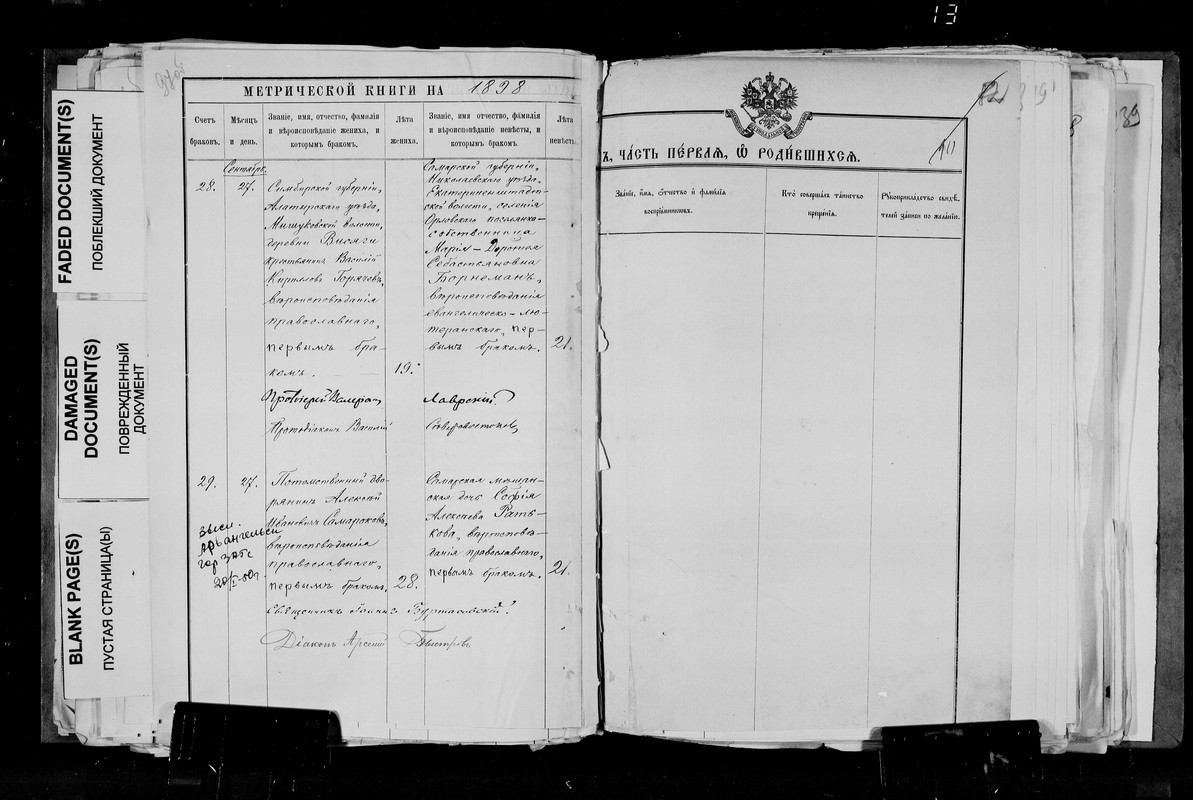 13
FADED DOCUMENT(S)
ПОБЛЕКШИЙ ДОКУМЕНТ
DAMAGED DOCUMENT(S)
ПОВРЕЖДЕННЫЙ ДОКУМЕНТ
BLANK PAGE(S)
ПУСТАЯ СТРАНИЦА(Ы)
МЕТРИЧЕСКОЙ КНИГИ НА 1898
Счетъ браковъ.
Мѣсяцъ и день.
Званіе, имя, отчество, фамилія
и вѣроисповѣданіе жениха, и
которымъ бракомъ.
Лѣта жениха.
Званіе, имя, отчество, фамилія
и вѣроисповѣданіе невѣсты, и
которымъ бракомъ.
Лѣта невѣсты.
Сентябрь.
28. 27.
Симбирской губерніи,
Алатырскаго уѣзда,
Мишуковской волости,
деревни Висяги
крестьянинъ Василій
Кирилловъ Горячевъ,
вѣроисповѣданія
православнаго,
первымъ бра-
комъ.
19.
Самарской губерніи,
Николаевскаго уѣзда,
Екатериненштадт-
ской волости, селенія
Орловскаго поселянка-
собственница
Марія-Доротея
Себастьяновна
Борнеманъ,
вѣроисповѣданія
евангелическо-лю-
теранскаго, пер-
вымъ бракомъ.
21.
Протоіерей Валеріанъ Лаврскій
Протодіаконъ Василій
29. 27.
Потомственный дво-
рянинъ Алексѣй
Ивановичъ Самараковъ,
вѣроисповѣданія
православнаго,
первымъ бракомъ.
28.
Самарская мѣщан-
ская дочь Софія
Алексѣева Рать-
кова, вѣроисповѣ-
данія православнаго,
первымъ бракомъ.
21.
высл.
Архангельск
гор ЗАГС
Священникъ Іоаннъ
Діаконъ Арсеній Быстровъ
Ъ, ЧАСТЬ ПЕРВАЯ, Ѡ РОДИВШИХСЯ.
Званіе, имя, отчество и фамилія
воспріемниковъ.
Кто совершалъ таинство
крещенія.
Рукоприкладство свидѣ-
телей записи по желанію.
39